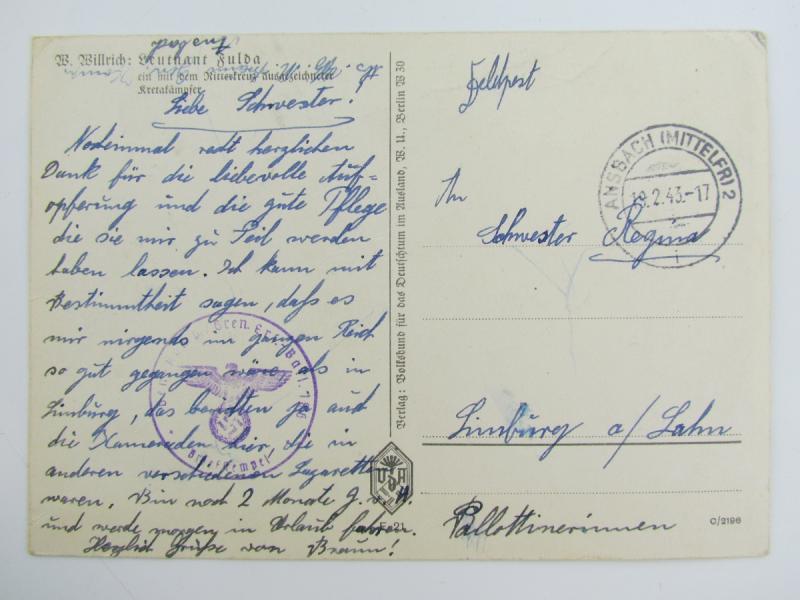 W. Willrich: Leutnant Fulda
ein mit dem Ritterkreuz ausgezeichneter
Kretakämpfer
Liebe Schwester!
Nocheinmal recht herzlichen
Dank für die liebevolle Auf-
opferung und die gute Pflege
die sie mir zu Teil werden
haben lassen. Ich kann mit
Bestimmtheit sagen, dass es
mir nirgends im ganzen Reich
so gut gegangen wäre als in
Limburg, das
die Kameraden hier, die in
anderen verschiedenen Lazarett
waren, Bin noch 2 Monate G. v. H
und werde morgen in Urlaub fahren.
Herzlich Grüße von Braun!
Gren. Ers. Batl.
Briefstempel
Verlag: Volksbund für das Deutschtum im Ausland, W. U., Berlin W 30
VDA
Feldpost
ANSBACH (MITTELFR) 2
19.2.43.-17
i
An
Schwester Regina
Limburg a/Lahn
Pallottinerinnen
C/2196